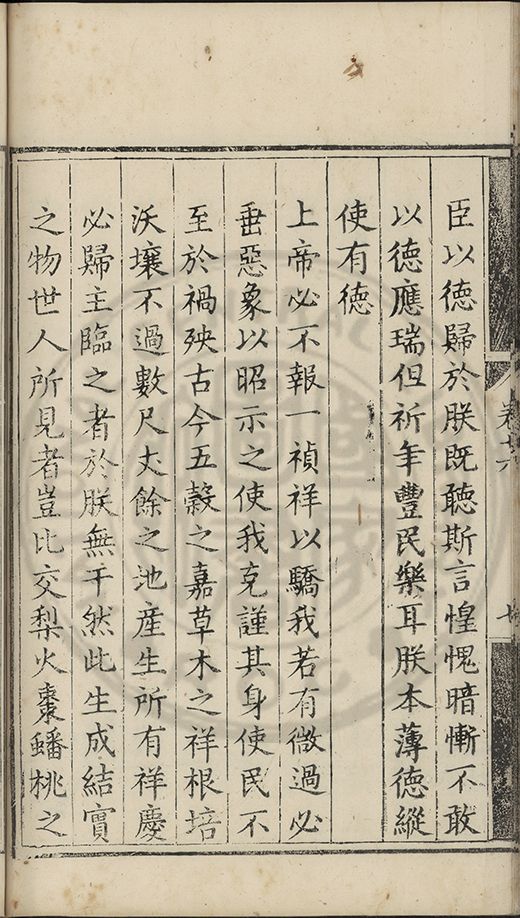 臣以德歸於朕既聽斯言惶愧暗慚不敢
以德應瑞但祈年豐民樂耳朕本薄德縱
使有德
上帝必不報一禎祥以驕我若有微過必
垂惡象以昭示之使我克謹其身使民不
至於禍殃古今五穀之嘉草木之祥根培
沃壤不過數尺丈餘之地產生所有祥慶
必歸主臨之者於朕無干然此生成結實
之物世人所見者豈比交梨火棗蟠桃之